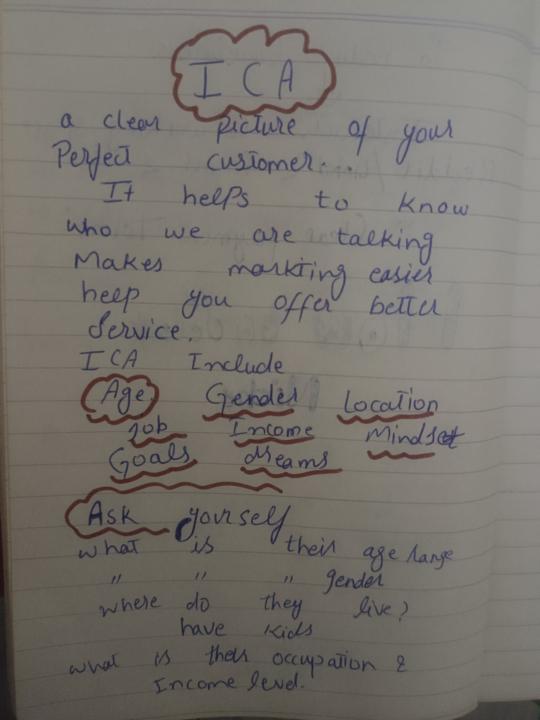 ICA
a clear picture of your
Perfect customer...
It helps to know
who we are talking
Makes markting easier
help you offer better
Service.
ICA Include
Age Gender Location
Job Income Mindset
Goals dreams
Ask yourself
what is their age range
" " " gender
where do they live?
have kids
what is their occupation &
Income level.